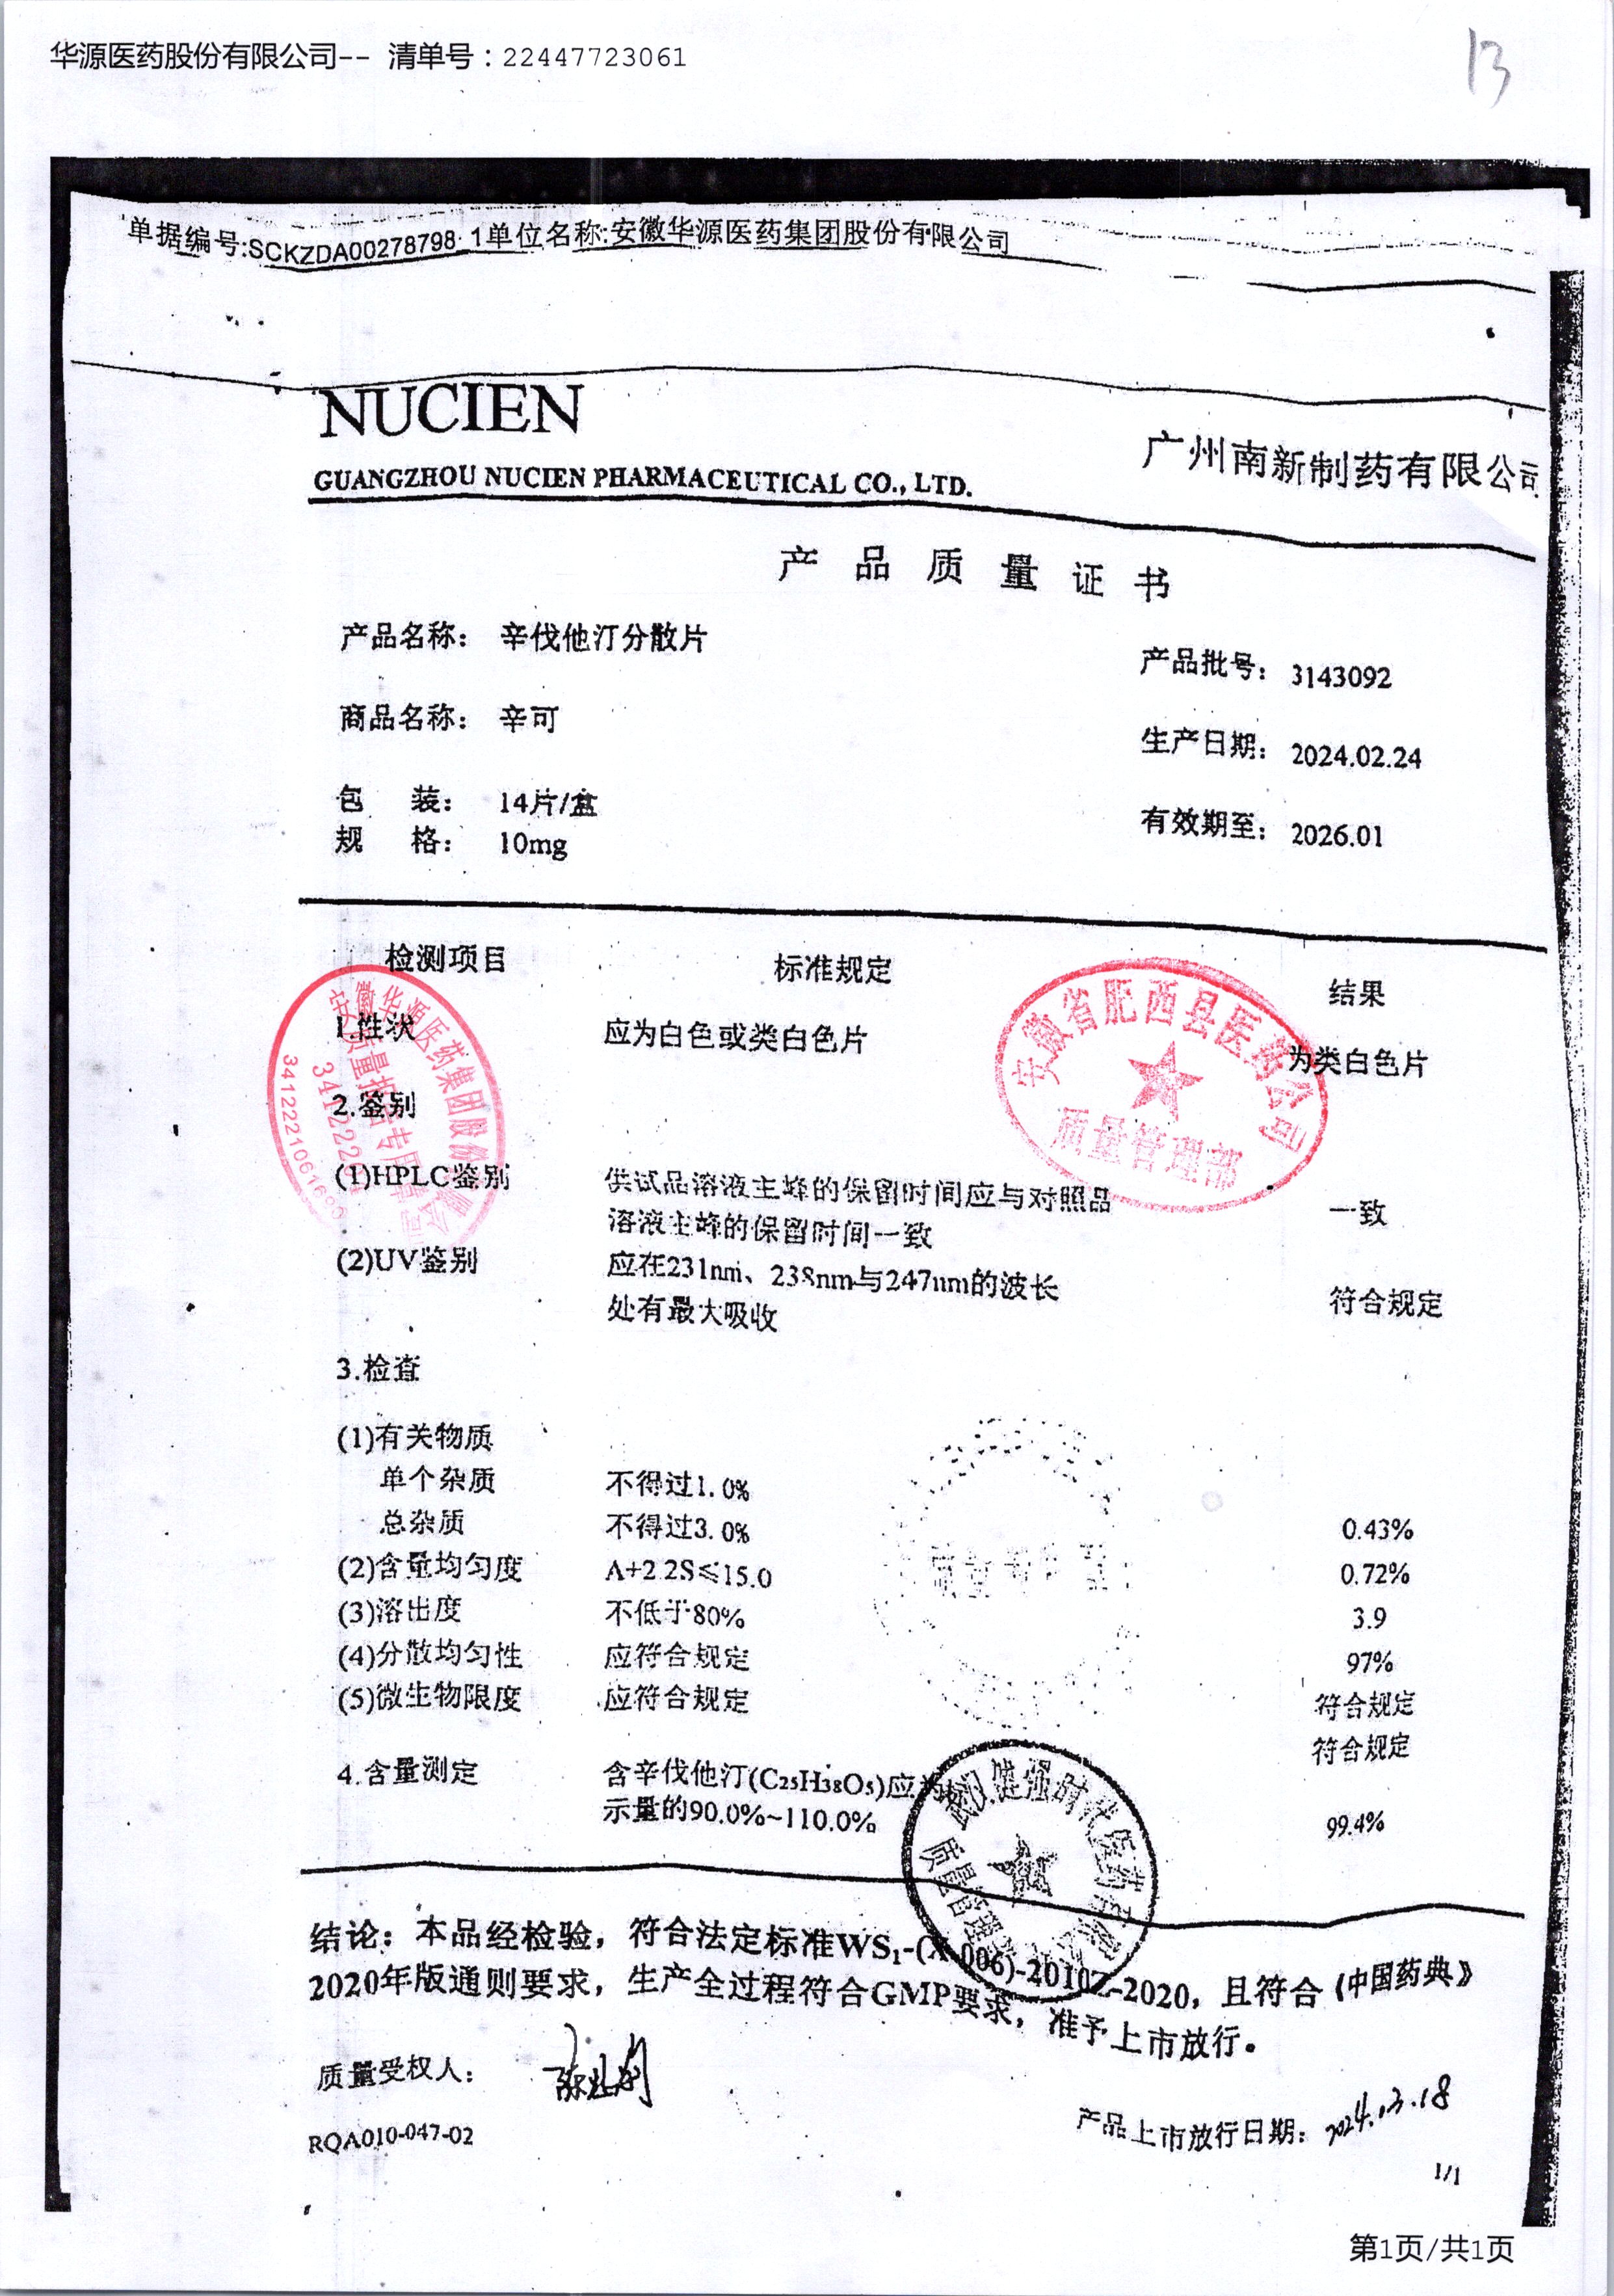 华源医药股份有限公司-- 清单号：22447723061
13
单据编号:SCKZDA00278798_1单位名称:安徽华源医药集团股份有限公司
NUCIEN
GUANGZHOU NUCIEN PHARMACEUTICAL CO., LTD.
广州南新制药有限公司
产品质量证书
产品名称： 辛伐他汀分散片
产品批号： 3143092
商品名称： 辛可
生产日期： 2024.02.24
包 装： 14片/盒
有效期至： 2026.01
规 格： 10mg
检测项目 标准规定 结果
1.性状 应为白色或类白色片 为类白色片
2.鉴别
(1)HPLC鉴别 供试品溶液主峰的保留时间应与对照品 一致
溶液主峰的保留时间一致
(2)UV鉴别 应在231nm、238nm与247nm的波长 符合规定
处有最大吸收
3.检查
(1)有关物质
单个杂质 不得过1.0% 0.43%
总杂质 不得过3.0% 0.72%
(2)含量均匀度 A+2.2S≤15.0 3.9
(3)溶出度 不低于80% 97%
(4)分散均匀性 应符合规定 符合规定
(5)微生物限度 应符合规定 符合规定
4.含量测定 含辛伐他汀(C25H38O5)应为标 99.4%
示量的90.0%~110.0%
安徽华源医药集团股份有限公司
质量报告专用章
安徽省肥西县医药公司
质量管理部
武汉健强时代医药有限
质量管理
结论：本品经检验，符合法定标准WS₁-(X-006)-2010Z-2020，且符合《中国药典》
2020年版通则要求，生产全过程符合GMP要求，准予上市放行。
质量受权人：
产品上市放行日期：2024.03.18
RQA010-047-02
1/1
第1页/共1页